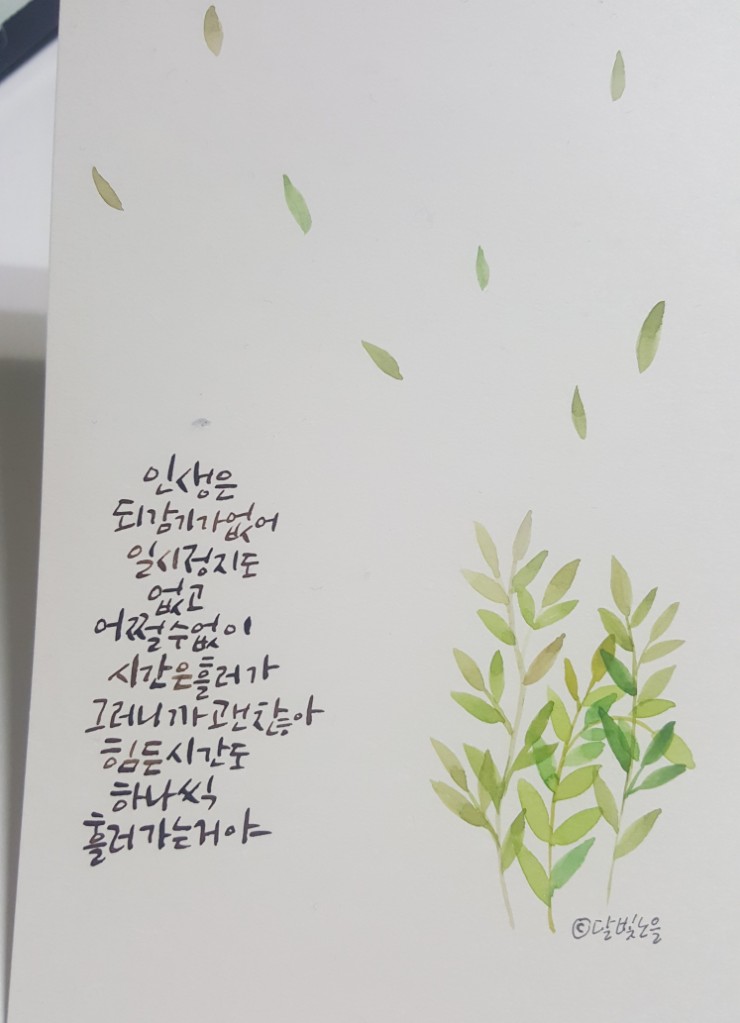 인생은
되감기가없어
일시정지도
없고
어쩔수없이
시간은흘러가
그러니까괜찮아
힘든시간도
하나씩
흘러가는거야
©달빛노을